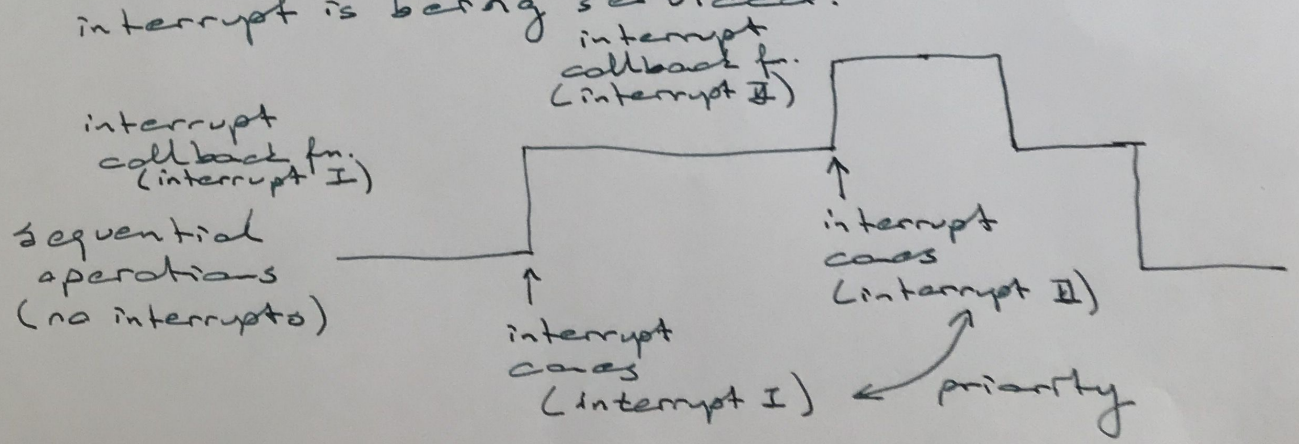 interrupt is being serviced.
interrupt
callback fn.
(interrupt II)
interrupt
callback fn.
(interrupt I)
sequential
operations
(no interrupts)
interrupt
comes
(interrupt II)
interrupt
comes
(interrupt I)
priority